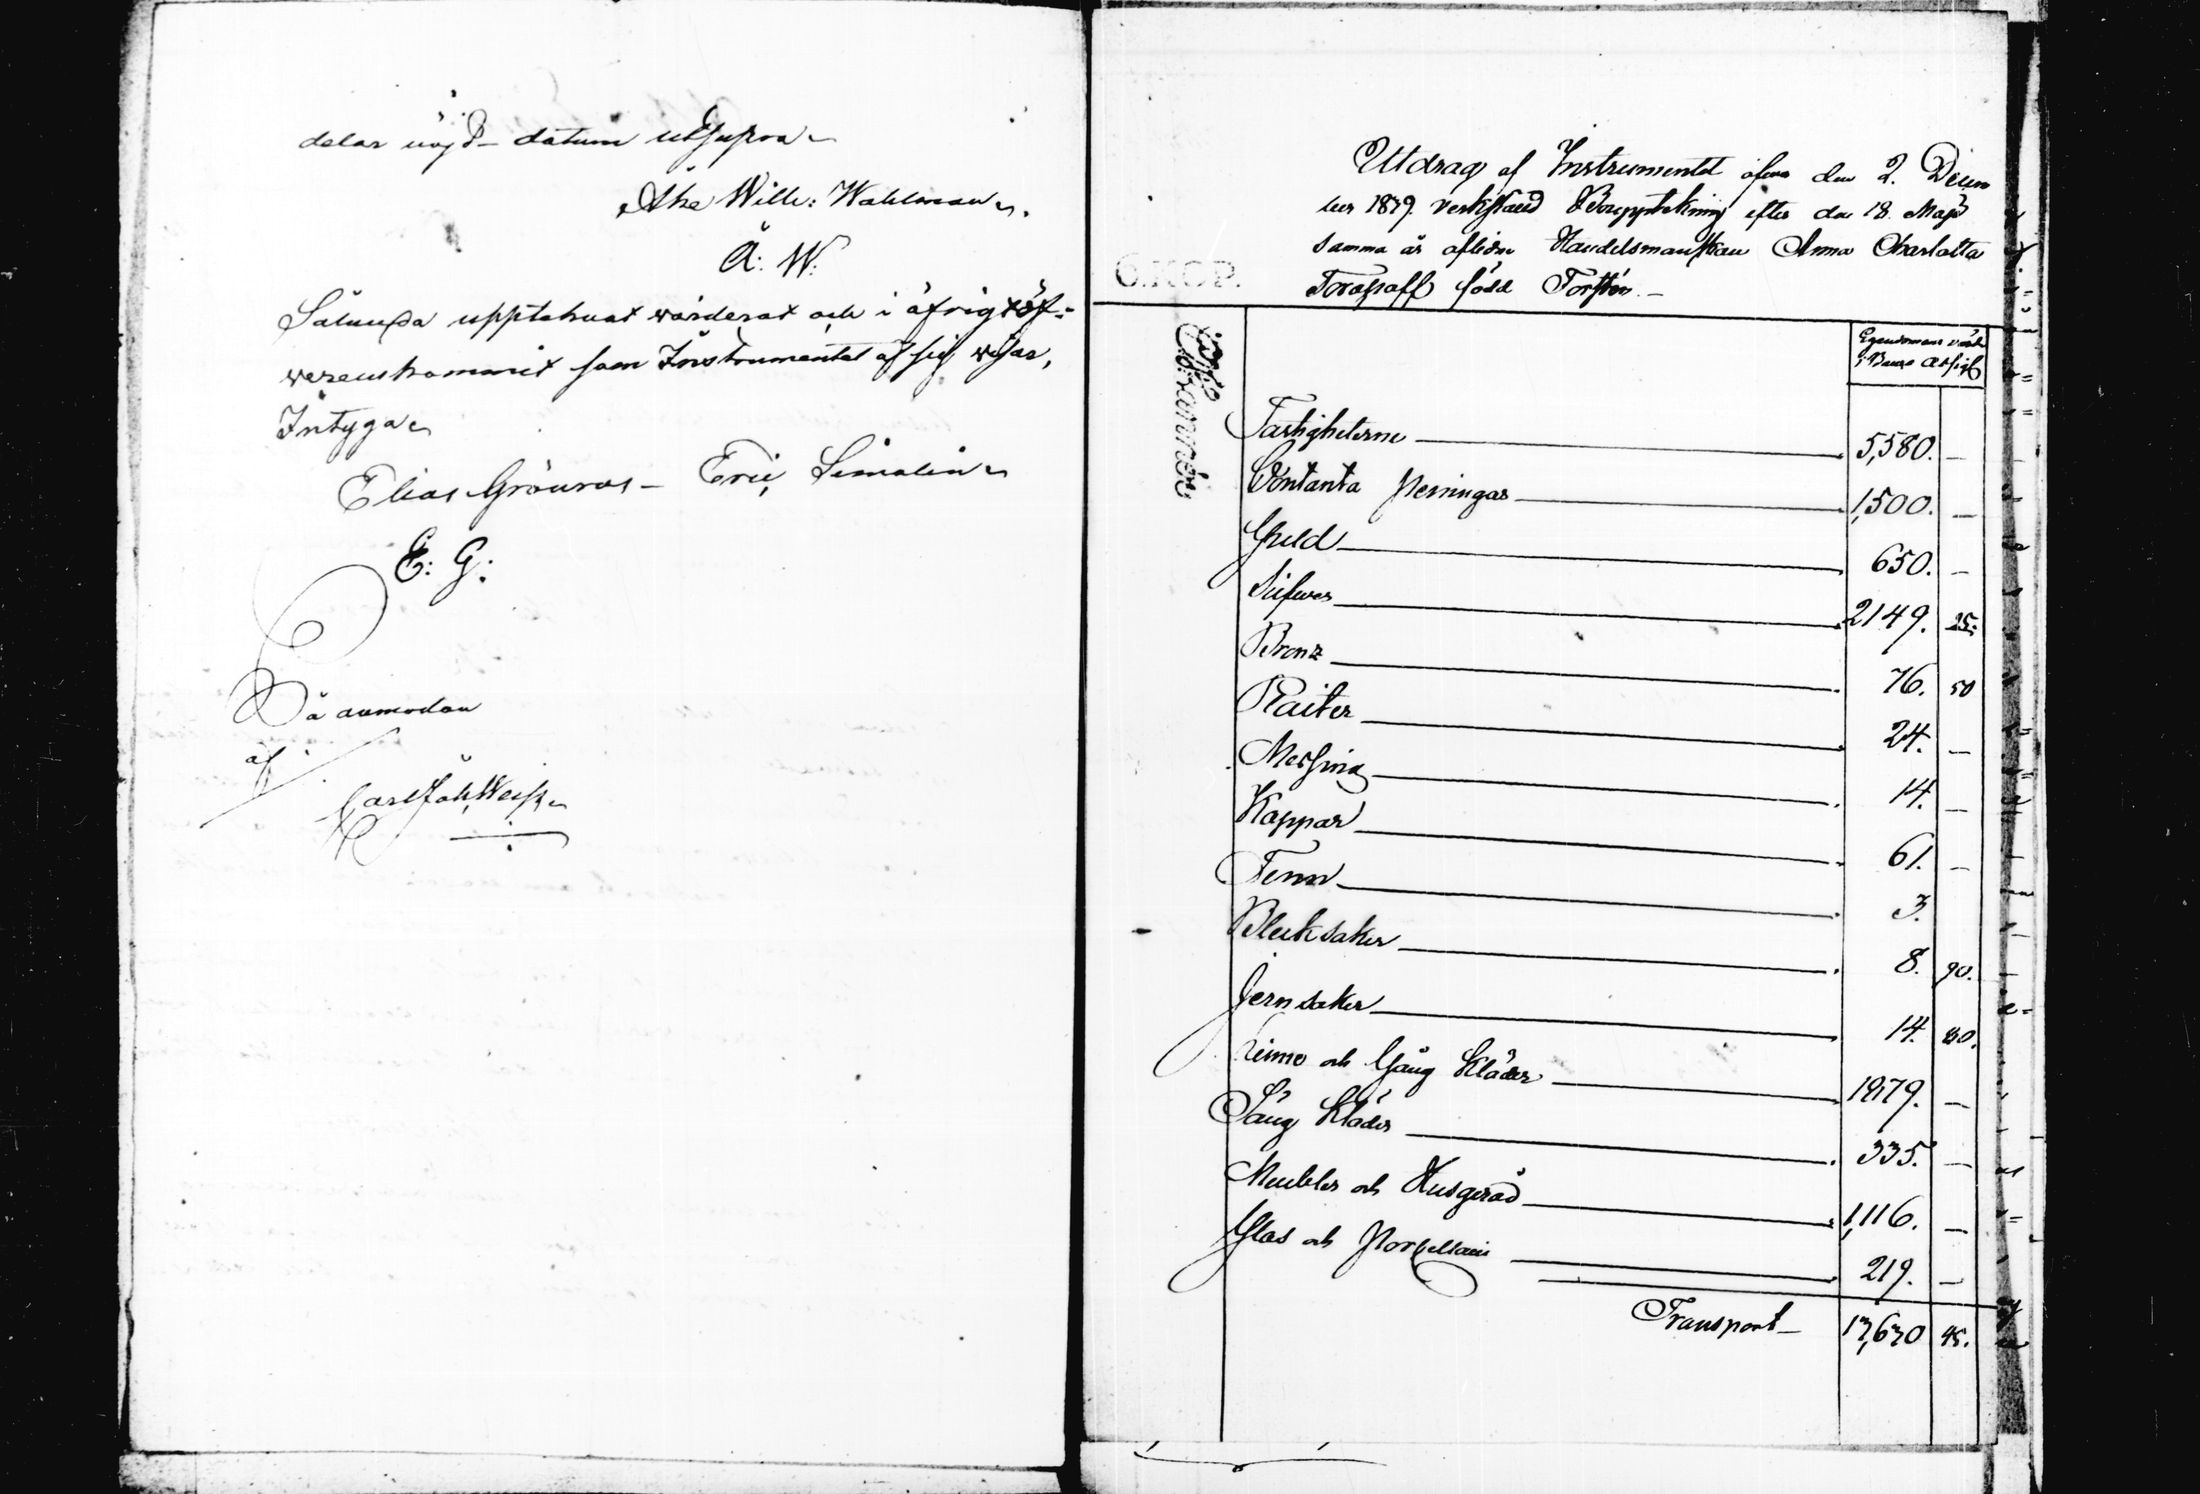 delar nöjd – datum utsupra
Åke Willh: Wahlman.
Å: W:
Sålunda upptecknat värderat och i öfrigt öf-
verenskommit som Instrumentet af sig visar,
Intygar
Elias Grönroos – Eric
E: G:
På anmodan
af
Carl Joh. Weiss
Utdrag af Instrumentet öfver den 2. Decem
ber 1879. verkstäld Bouppteckning efter den 18. Maji
samma år aflidne Handelsmanskan Anna Charlotta
född Forstén. –
G. KOP.
Egendomens värde
i Banco Assig
Fastigheterne 5,580. –
Contanta Penningar 1,500. –
Guld 650. –
Silfwer 2149. 25.
Bronz 76. 50
24. –
Messing 14. –
Koppar 61. –
Tenn 3.
Blecksaker 8. 90.
Jernsaker 14. 80.
Linne och Gång Kläder 1979. –
Säng Kläder 335. –
Meubler och Husgeråd 1,116. –
Glas och Porcellain 219. –
Transport – 45.